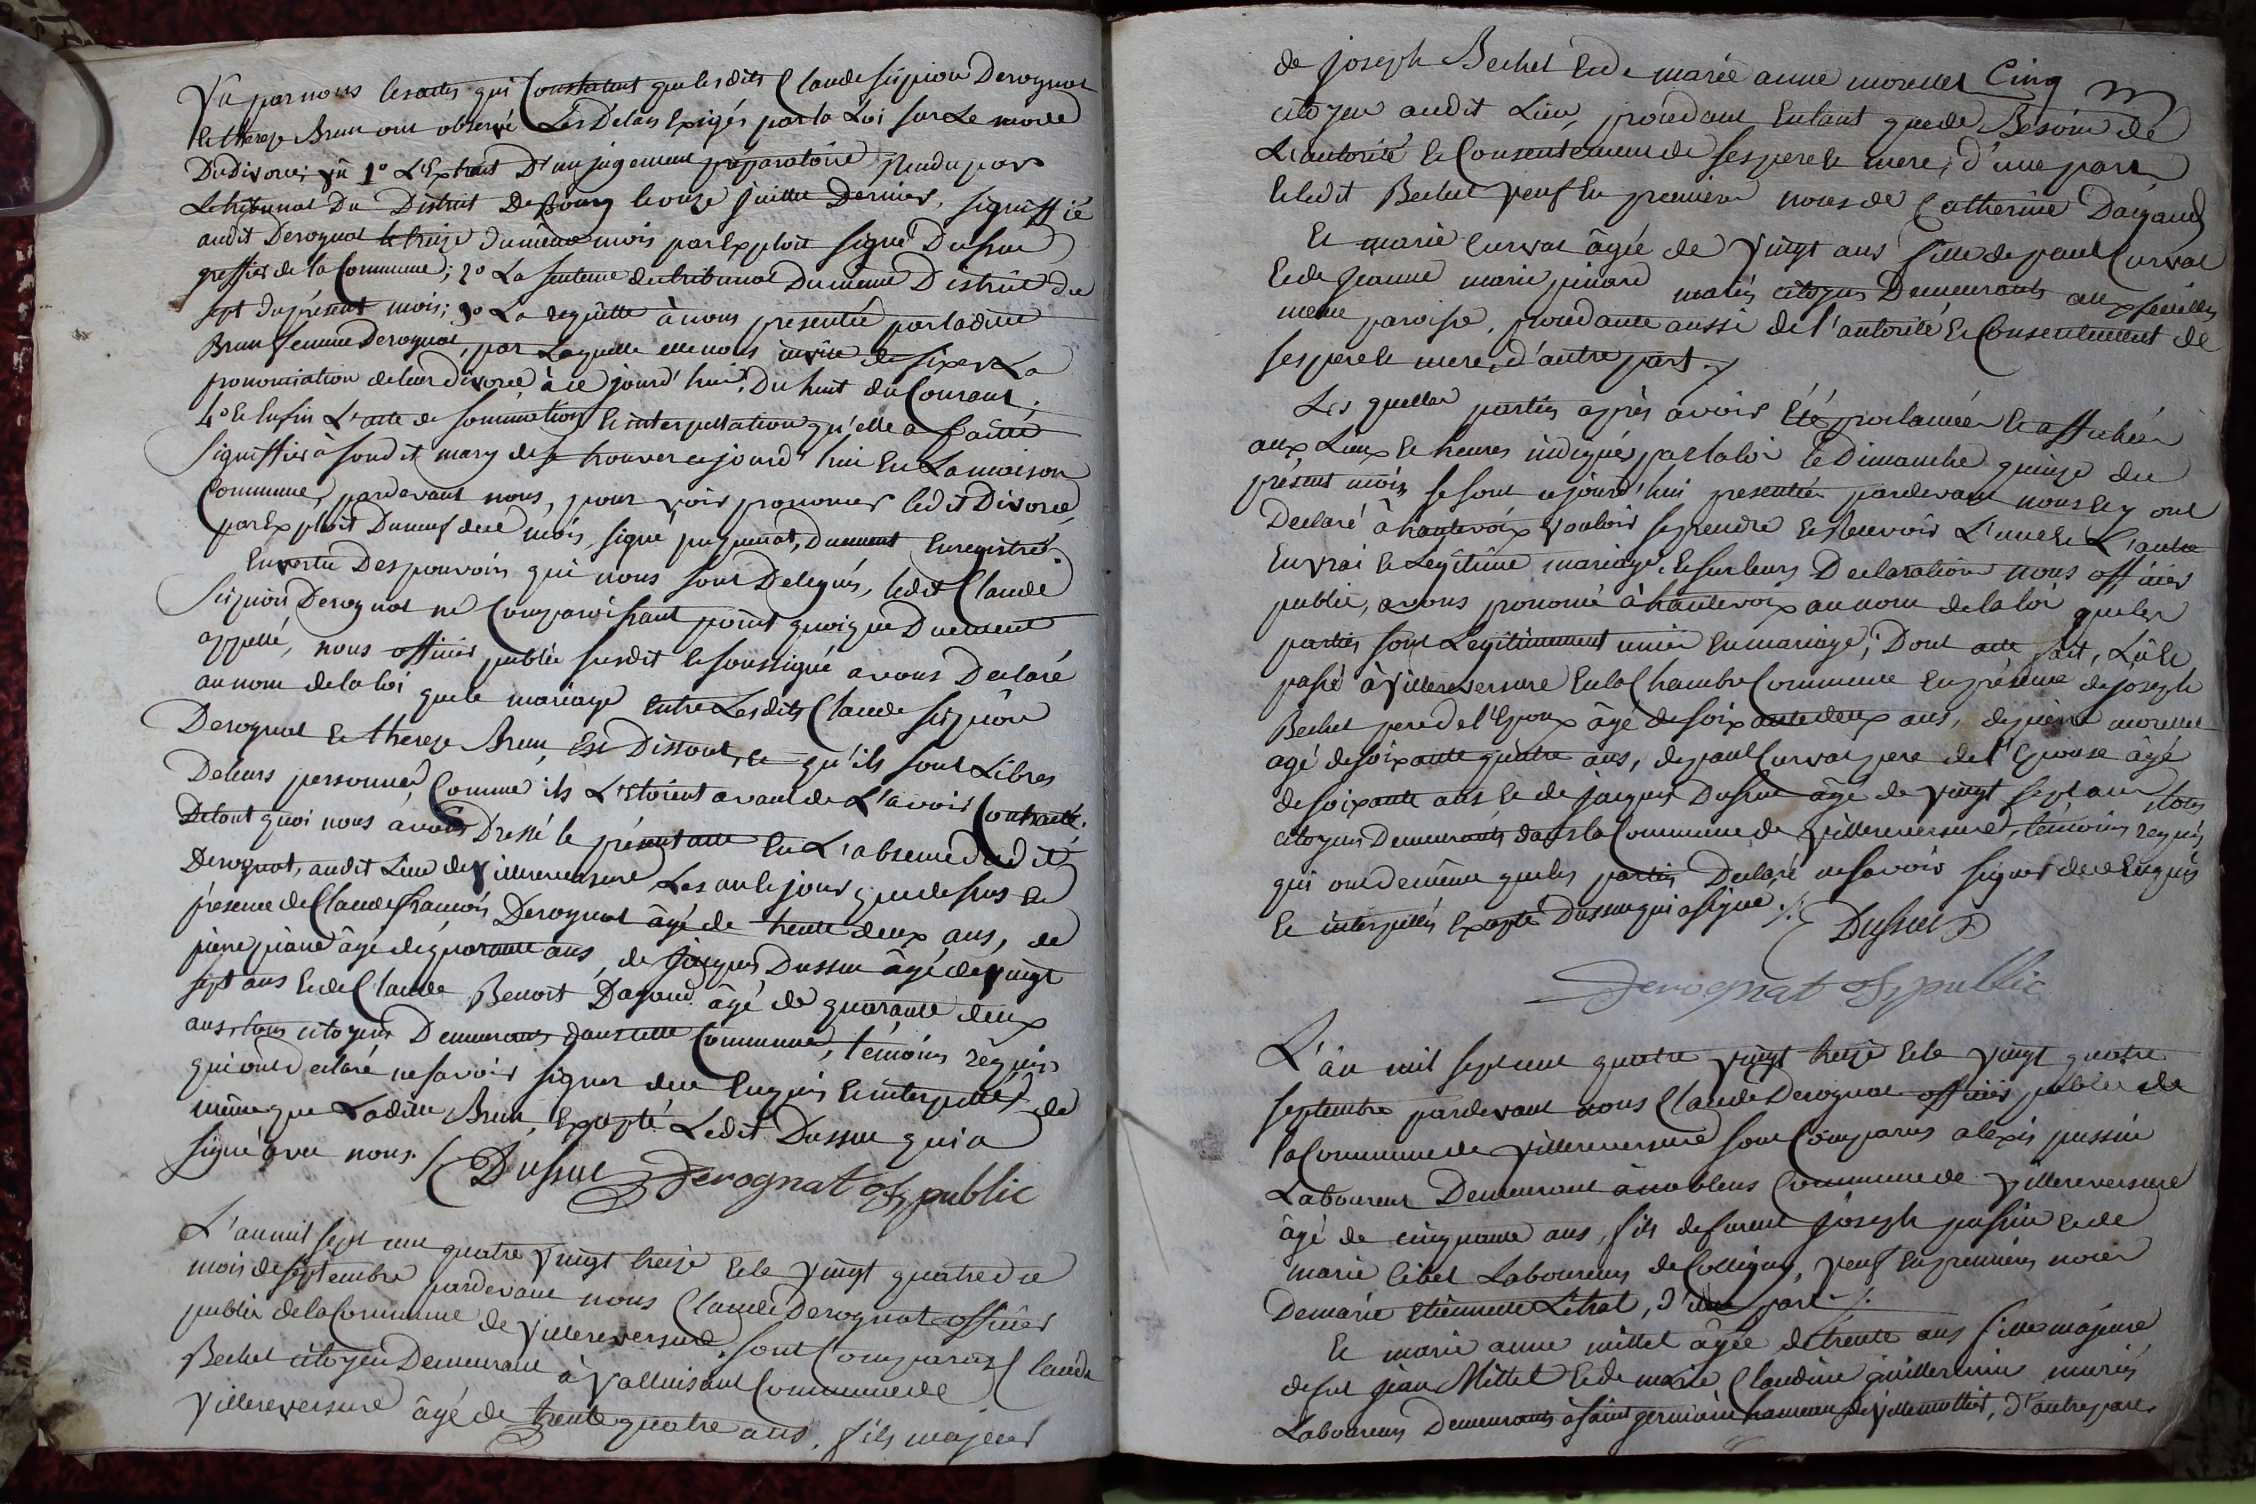 Vu par nous les actes qui Constatent que lesdits Claude Sipion Derognat
et thereze Brun ont observé Les Délais Exigés par la Loi sur Le mode
Du divorce; vu 1° L'Extrait D'un jugement préparatoire Rendu par
Le tribunal Du District De Bourg le onze juillet Dernier, signiffié
audit Derognat le treize du même mois par Exploit signé Dussuc
greffier de la Commune; 2° La sentence du tribunal Du même District du
sept du présent mois; 3° La requette à nous presentée par ladite
Brun femme Derognat, par Laquelle elle nous invite de fixer La
prononciation de leur divorce à ce jourd'hui, Du huit du Courant;
4° Et Enfin L'acte de sommation Et interpellation qu'elle a faitte
signiffier à sondit mary de se trouver cejourd'hui En La maison
Commune, pardevant nous, pour voir prononcer ledit Divorce,
par Exploit Du neuf dece mois, signé puquenat, duement Enregistré.
En vertu Des pouvoirs qui nous sont Delegués, ledit Claude
Sipion Derognat ne Comparoissant point quoique Duement
appellé, nous officier public susdit et soussigné avons Declaré
au nom de la loi que le mariage Entre Lesdits Claude Sipion
Derognat Et thereze Brun, Est Dissout, Et qu'ils sont Libres
De leurs personnes, Comme ils L'etoient avant de L'avoir Contracté.
De tout quoi nous avons Dressé le présent acte En L'absence dudit
Derognat, audit Lieu de Villereversure Les an le jour que dessus En
présence de Claude francois Derognat âgé de trente deux ans, de
pierre piane âgé de quarante ans, de jacques Dussuc âgé de vingt
sept ans Et de Claude Benoit Dagaud âgé de quarante deux
ans, tous citoyens Demeurants dans cette Commune, témoins requis
qui ont declaré ne savoir signer de ce Enquis Et interpellés de
même que Ladite Brun, Excepté Ledit Dussuc qui a
signé avec nous. /.
Dussuc Derognat off public
L'an mil sept cent quatre vingt treize Et le vingt quatre du
mois de septembre pardevant nous Claude Derognat officier
public de la Commune de Villereversure, sont Comparus Claude
Bechet citoyen Demeurant à Valluisant Commune de
Villereversure âgé de trente quatre ans, fils majeur
Cinq
de joseph Bechet Et de marie anne morellet
citoyen audit Lieu, procedant Entant que de Besoin de
L'autorité Et Consentement de ses pere et mere, d'une part
Et ledit Bechet veuf En première noces de Catherine Dagaud
Et marie Curvat âgée de vingt ans fille de paul Curvat
Et de jeanne marie pinard mariés citoyens Demeurants
même paroisse, procedante aussi de l'autorité Et Consentement de
ses pere et mere, d'autre part. /.
Les quelles parties après avoir Eté proclamées Et affichées
aux Lieux Et heures indiqués par la loi le Dimanche quinze du
présent mois se sont cejourd'hui presentées pardevant nous Et y ont
Declaré à hautevoix vouloir se prendre Et Recevoir L'un Et L'autre
En vrai Et Legitime mariage, Et sur leurs Declaration nous officier
public, avons prononcé à hautevoix au nom de la loi que les
parties sont Legitimement unies En mariage; Dont acte fait, Lu Et
passé à Villereversure En la Chambre Commune En présence de joseph
Bechet pere de l'Epoux âgé de soixante deux ans, de pierre morellet
agé de soixante quatre ans, de paul Curvat pere de l'Epouse âgé
de soixante ans Et de jacques Dussuc âgé de vingt sept ans tous
citoyens Demeurants dans la Commune de Villereversure, témoins requis
qui ont de même que les parties Declaré ne savoir signer de ce Enquis
Et interpellés Excepté Dussuc qui a signé. /.
Dussuc
Derognat off public
L'an mil sept cent quatre vingt treize Et le vingt quatre
septembre pardevant nous Claude Derognat officier public de
la Commune de Villereversure sont Comparus alexis pussin
Laboureur Demeurant à noblens Commune de Villereversure
âgé de cinquante ans, fils de furent joseph pussin Et de
marie libet Laboureurs de Colligny, veuf En premières noces
De marie etiennette Létrat, d'une part. /.
Et marie anne millet âgée de trente ans fille majeure
de fut jean Millet Et de marie Claudine guillermin mariés
Laboureurs Demeurants à saint germain hameau de villemottier, d'autre part